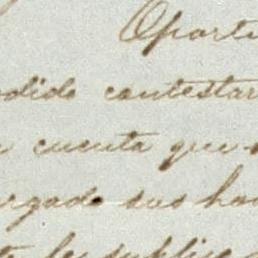 Oportu
odido contestar
cuenta que
rgado sus ho
te le suplico